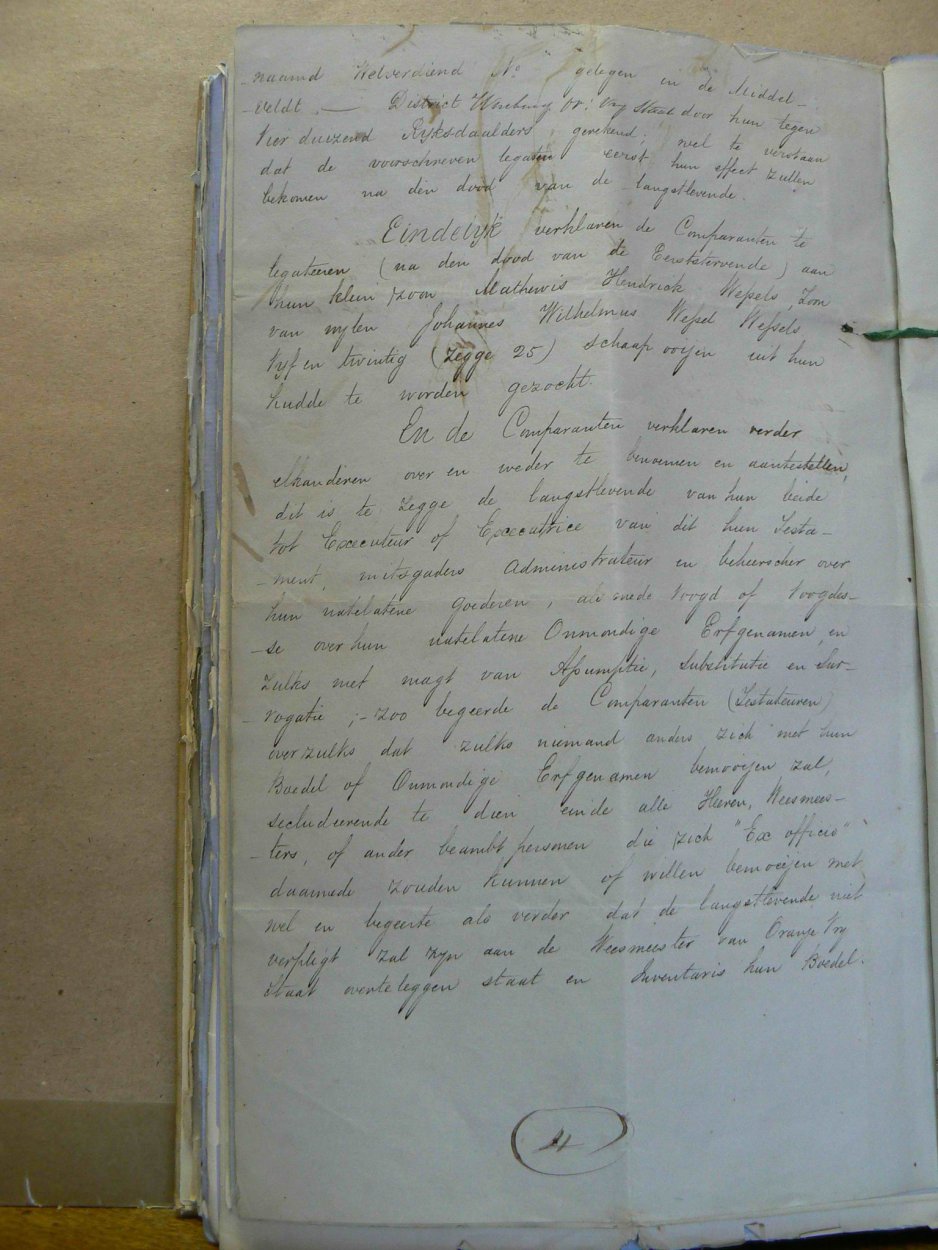 -naamd Welverdiend No gelegen in de Middel-
-veldt — District Winburg Or: Vry Staat door hun tegen
Vier duizend Ryksdaalders, gerekend; wel te verstaan
dat de voorschreven legaten eerst hun effect zullen
bekomen na den dood van de langstlevende.
Eindelyk verklaren de Comparanten te
legateeren (na den dood van de Eerststervende) aan
hun klein zoon Mathewis Hendrick Wessels, Zoon
van wylen Johannes Wilhelmus Wessel Wessels
Vyf en twintig (Zegge 25) schaap ooijen uit hun
kudde te worden gezocht.
En de Comparanten verklaren verder
elkanderen over en weder te benoemen en aantestellen,
dit is te Zegge de langstlevende van hun beide
tot Executeur of Executrice van dit hun Testa-
-ment, mitsgaders Administrateur en beheerscher over
hun natelatene Goederen, als mede Voogd of Voogdes-
-se over hun natelatene Onmondige Erfgenamen, en
Zulks met magt van Assumptie, Substitutie en Sur-
-rogatie ;- zoo begeerde de Comparanten (Testateuren)
overzulks dat zulks niemand anders zich met hun
Boedel of Onmondige Erfgenamen bemooijen zal,
secludeerende te dien einde alle Heeren, Weesmees-
-ters, of ander beambt personen die zich "Ex officio"
daarmede zouden kunnen of willen bemoeijen met
wel en begeerte als verder dat de langstlevende niet
verpligt zal zyn aan de Weesmeester van Oranje Vry
Staat overteleggen staat en Inventaris hun Boedel.
4